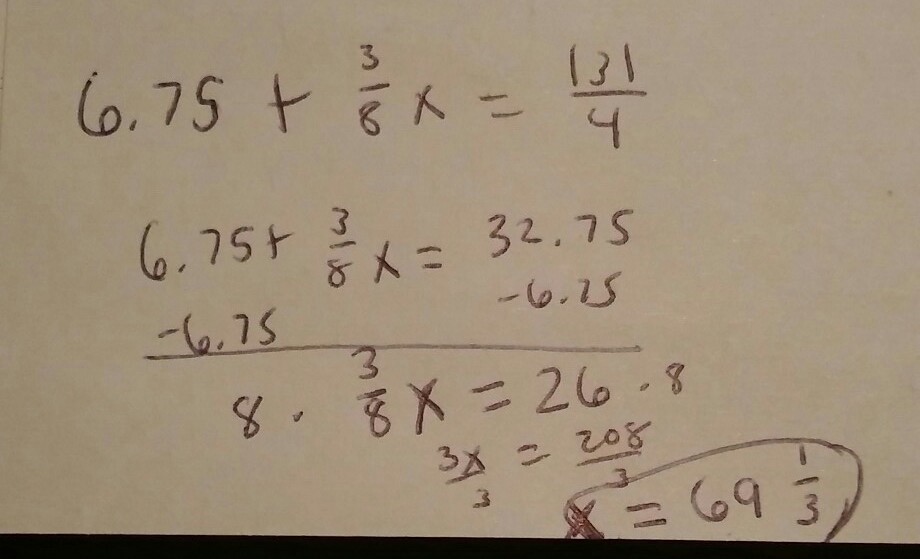 6.75 + 3/8 x = 131/4
6.75 + 3/8 x = 32.75
-6.75 -6.75
8 · 3/8 x = 26 · 8
3x/3 = 208/3
x = 69 1/3